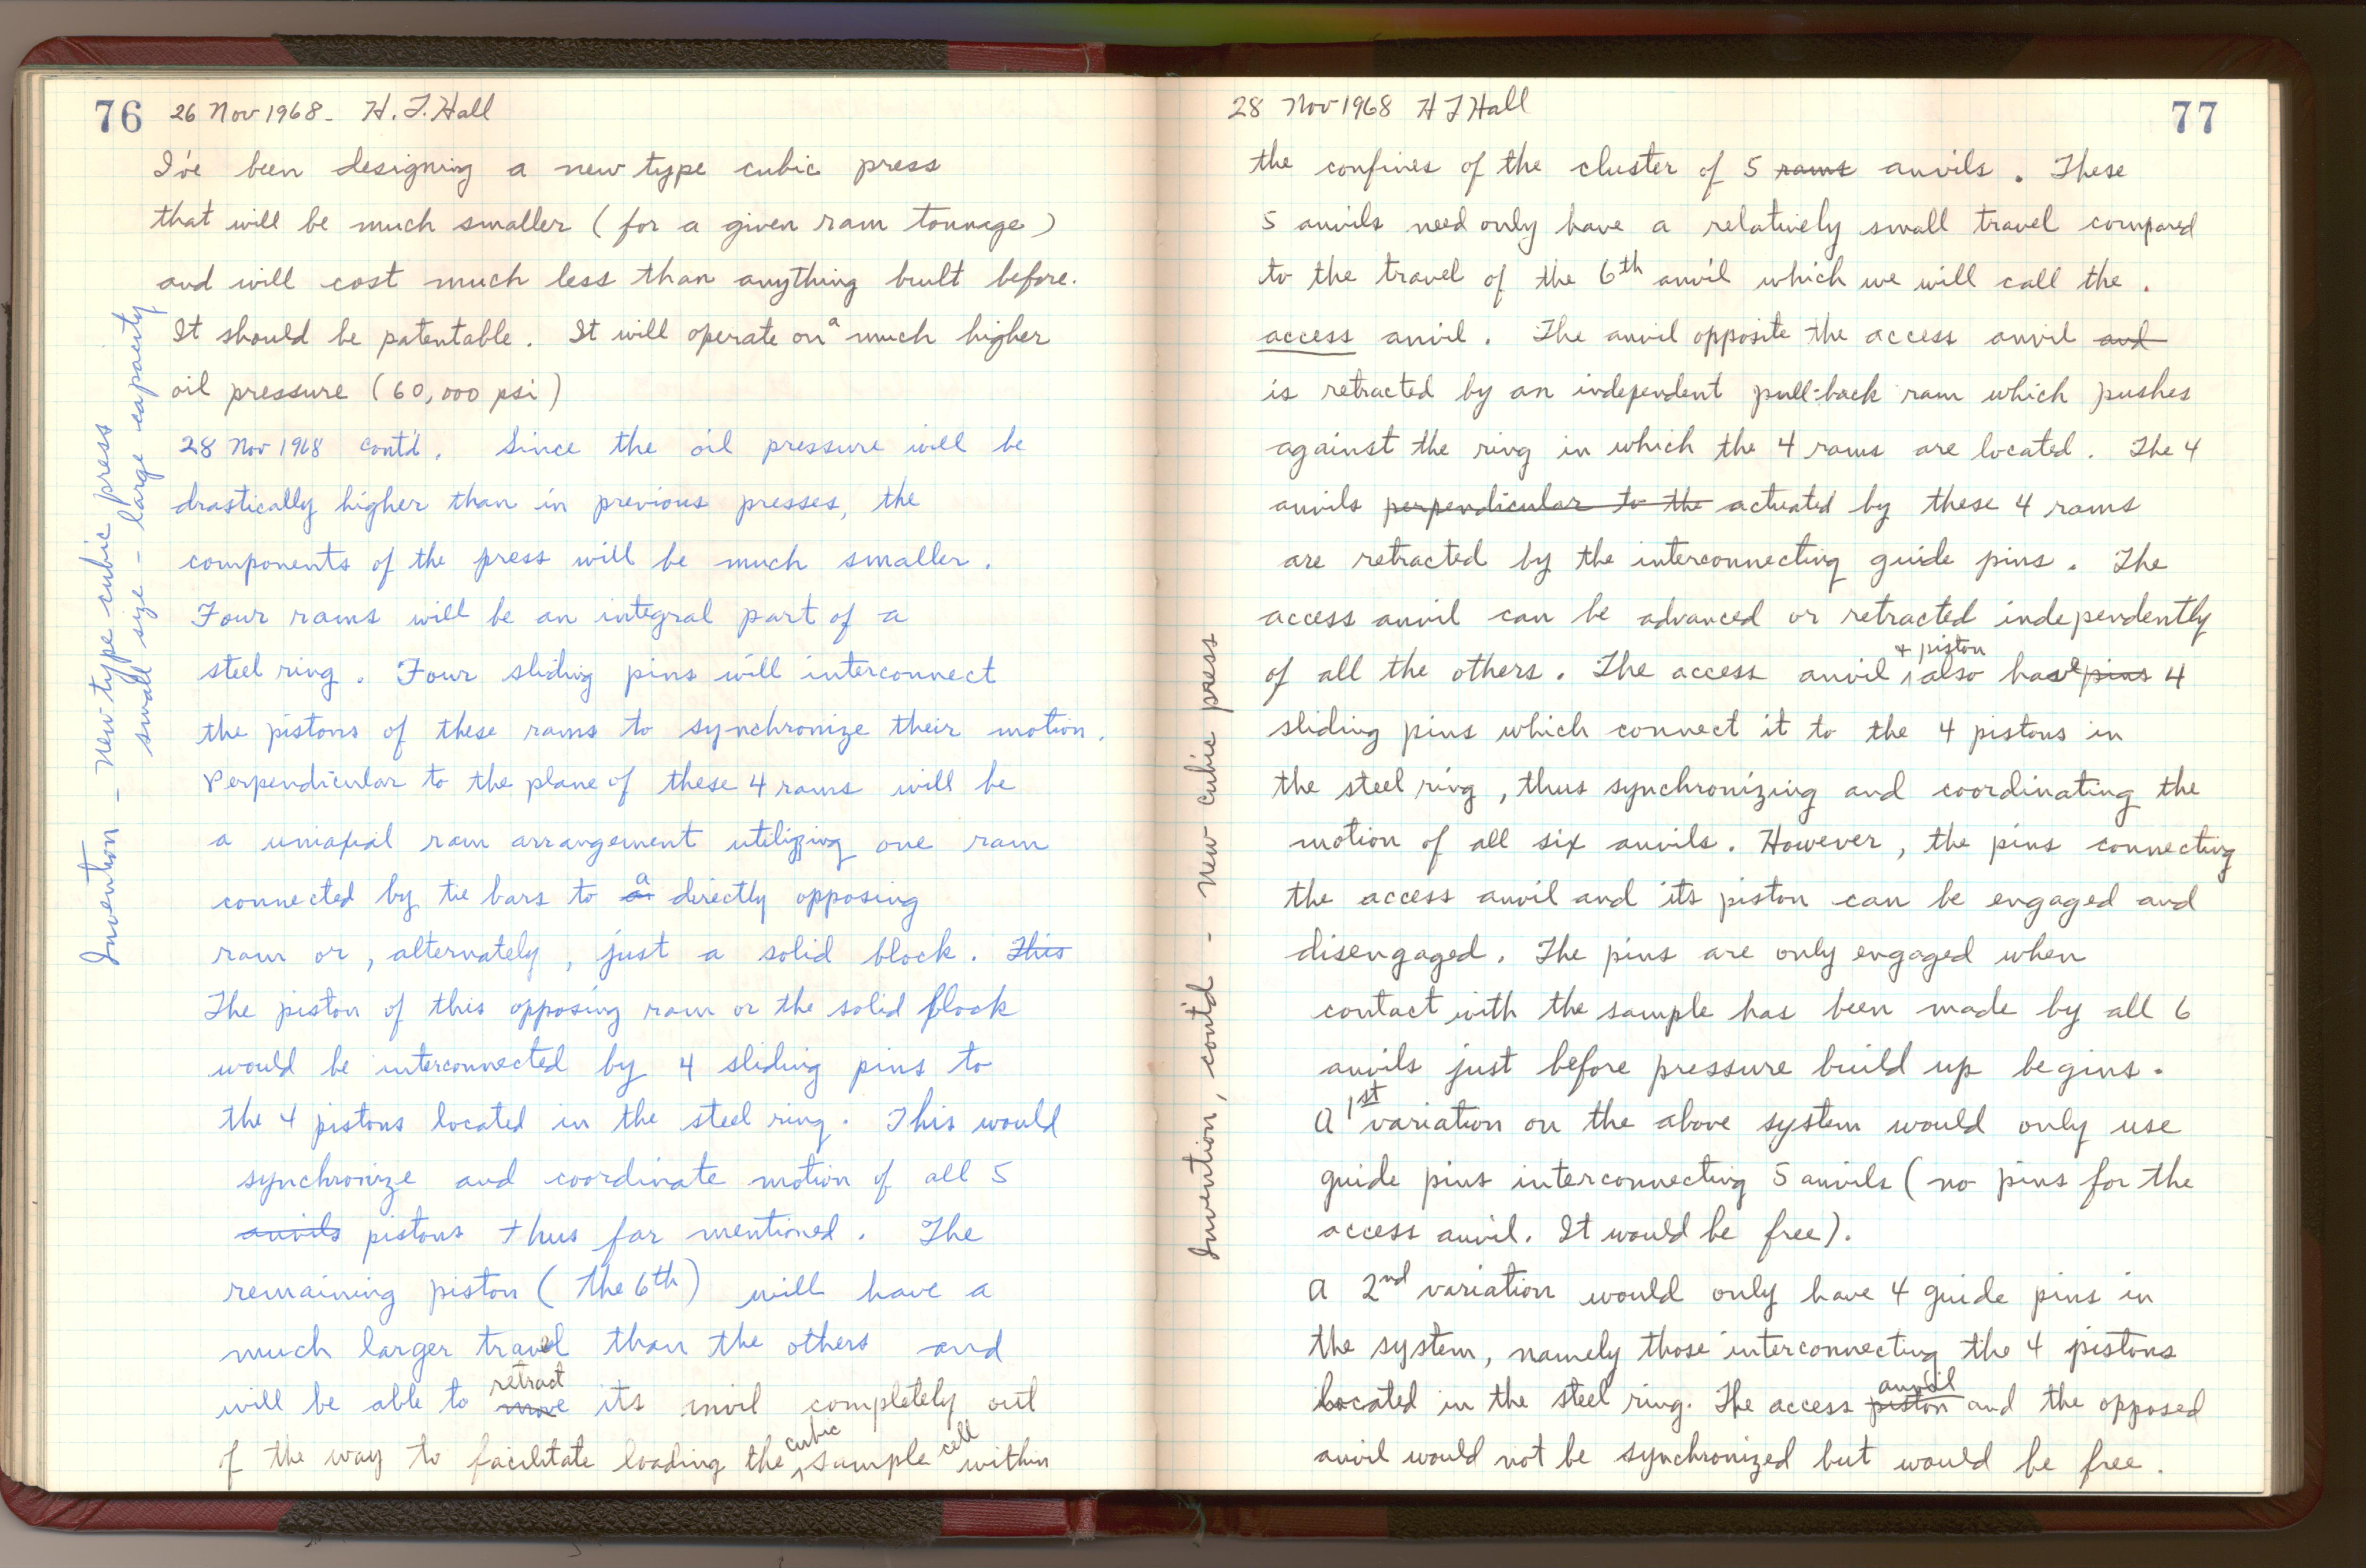 76 26 Nov 1968 - H. T. Hall
I've been designing a new type cubic press
that will be much smaller (for a given ram tonnage)
and will cost much less than anything built before.
It should be patentable. It will operate on a much higher
oil pressure (60,000 psi)
28 Nov 1968 cont'd. Since the oil pressure will be
drastically higher than in previous presses, the
components of the press will be much smaller.
Four rams will be an integral part of a
steel ring. Four sliding pins will interconnect
the pistons of these rams to synchronize their motion.
Perpendicular to the plane of these 4 rams will be
a uniaxial ram arrangement utilizing one ram
connected by tie bars to an a directly opposing
ram or, alternately, just a solid block. This
The piston of this opposing ram or the solid block
would be interconnected by 4 sliding pins to
the 4 pistons located in the steel ring. This would
synchronize and coordinate motion of all 5
anvils pistons thus far mentioned. The
remaining piston (the 6th) will have a
much larger travel than the others and
will be able to move retract its anvil completely out
of the way to facilitate loading the cubic sample cell within
Invention - New type cubic press
small size - large capacity
28 Nov 1968 H T Hall 77
the confines of the cluster of 5 rams anvils. These
5 anvils need only have a relatively small travel compared
to the travel of the 6th anvil which we will call the.
access anvil. The anvil opposite the access anvil and
is retracted by an independent pull-back ram which pushes
against the ring in which the 4 rams are located. The 4
anvils perpendicular to the actuated by these 4 rams
are retracted by the interconnecting guide pins. The
access anvil can be advanced or retracted independently
of all the others. The access anvil + piston also have pins 4
sliding pins which connect it to the 4 pistons in
the steel ring, thus synchronizing and coordinating the
motion of all six anvils. However, the pins connecting
the access anvil and its piston can be engaged and
disengaged. The pins are only engaged when
contact with the sample has been made by all 6
anvils just before pressure build up begins.
A 1st variation on the above system would only use
guide pins interconnecting 5 anvils (no pins for the
access anvil. It would be free).
A 2nd variation would only have 4 guide pins in
the system, namely those interconnecting the 4 pistons
located in the steel ring. The access piston anvil and the opposed
anvil would not be synchronized but would be free.
Invention, cont'd - New cubic press